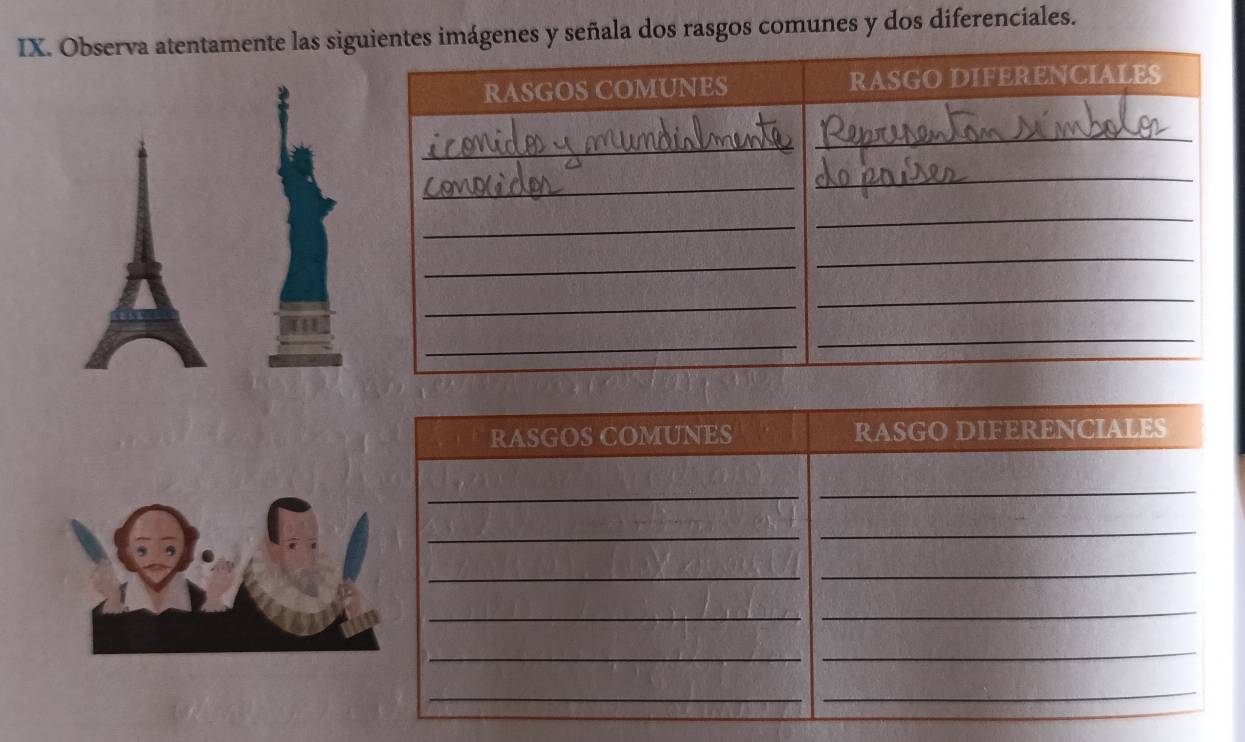 IX. Observa atentamente las siguientes imágenes y señala dos rasgos comunes y dos diferenciales.
RASGOS COMUNES
RASGO DIFERENCIALES
iconidos y mundialmente
conocidos
Representan simbolos
do paises
RASGOS COMUNES
RASGO DIFERENCIALES